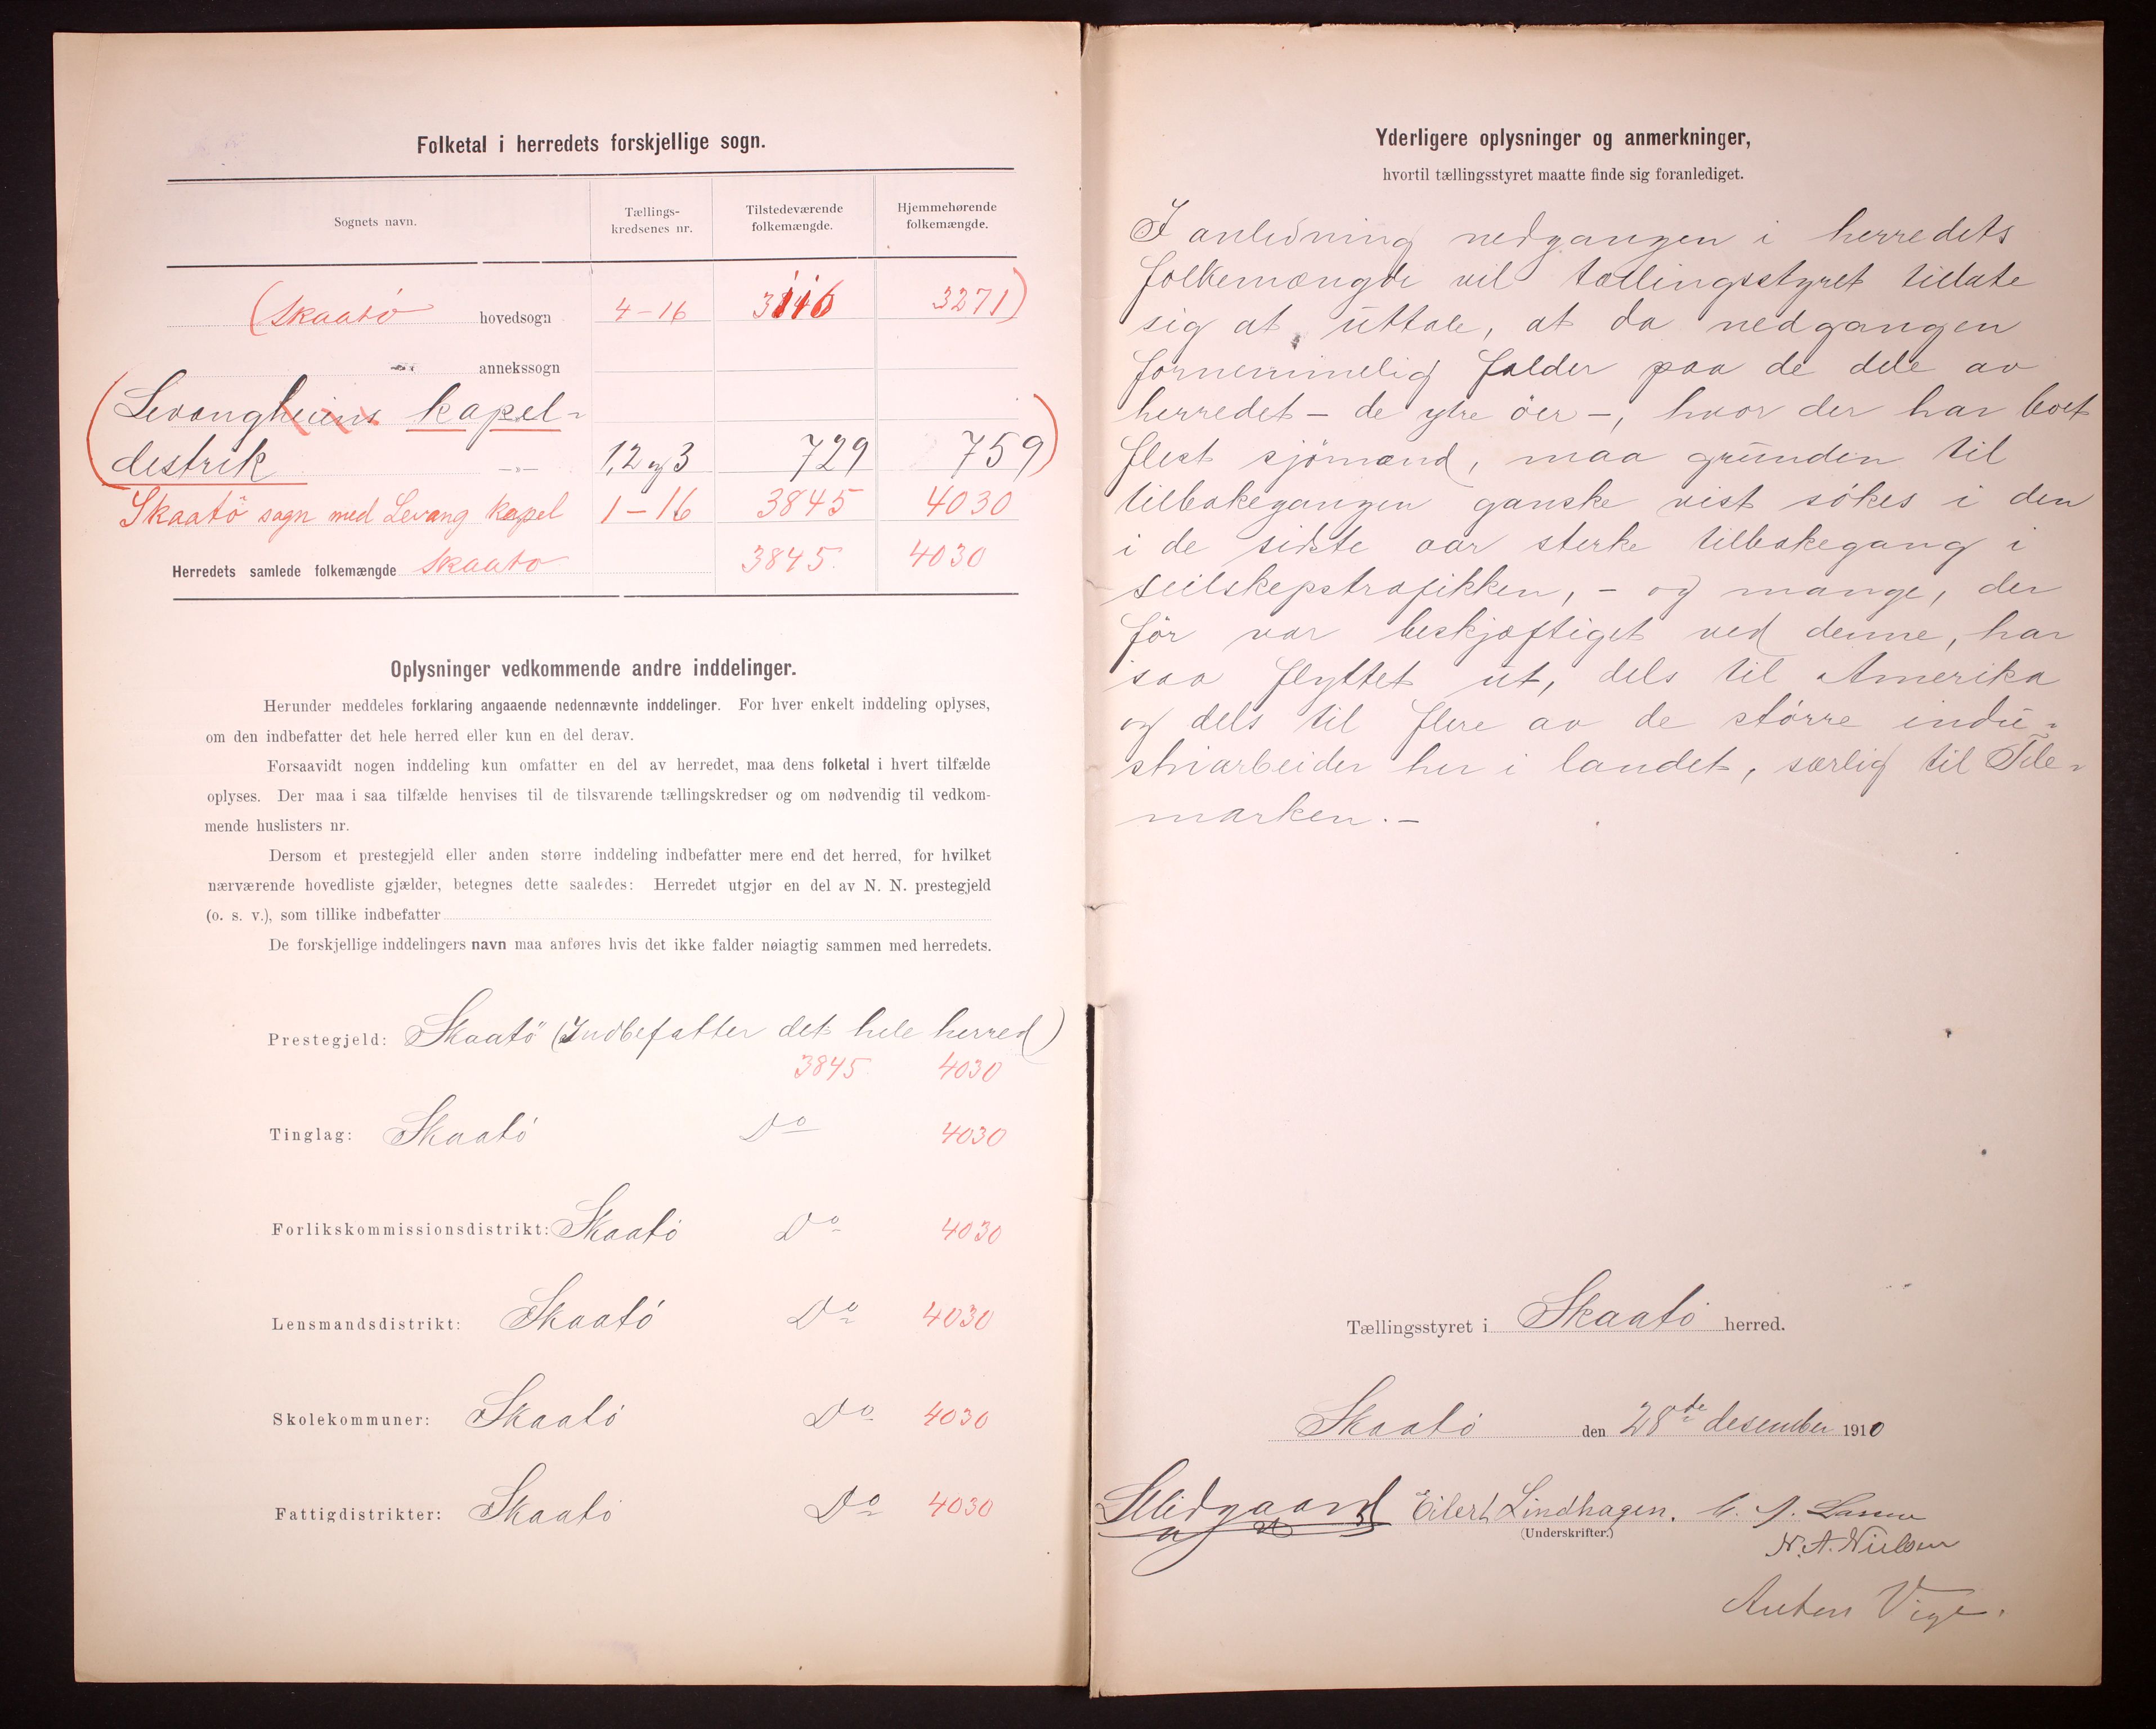 Folketal i herredets forskjellige sogn.
Sognets navn. Tællings-kredsenes nr. Tilstedeværende folkemængde. Hjemmehørende folkemængde.
(Skaatö hovedsogn 4-16 3116 3271)
annekssogn
(Levangheiens kapel-
destrik —»— 1,2 og 3 729 759)
Skaatö sogn med Levang kapel 1-16 3845 4030
Herredets samlede folkemængde Skaatö 3845. 4030
Oplysninger vedkommende andre inddelinger.
Herunder meddeles forklaring angaaende nedennævnte inddelinger. For hver enkelt inddeling oplyses,
om den indbefatter det hele herred eller kun en del derav.
Forsaavidt nogen inddeling kun omfatter en del av herredet, maa dens folketal i hvert tilfælde
oplyses. Der maa i saa tilfælde henvises til de tilsvarende tællingskredser og om nødvendig til vedkom-
mende huslisters nr.
Dersom et prestegjeld eller anden større inddeling indbefatter mere end det herred, for hvilket
nærværende hovedliste gjælder, betegnes dette saaledes: Herredet utgjør en del av N. N. prestegjeld
(o. s. v.), som tillike indbefatter
De forskjellige inddelingers navn maa anføres hvis det ikke falder nøiagtig sammen med herredets.
Prestegjeld: Skaatö (Indbefatter det hele herred)
3845. 4030
Tinglag: Skaatö Do 4030
Forlikskommissionsdistrikt: Skaatö Do 4030
Lensmandsdistrikt: Skaatö Do 4030
Skolekommuner: Skaatö Do 4030
Fattigdistrikter: Skaatö Do 4030
Yderligere oplysninger og anmerkninger,
hvortil tællingsstyret maatte finde sig foranlediget.
I anledning nedgangen i herredets
folkemængde vil tællingsstyret tillate
sig at uttale, at da nedgangen
fornemmelig falder paa de dele av
herredet - de ytre öer -, hvor der har boet
flest sjömænd, maa grunden til
tilbakegangen ganske vist sökes i den
i de sidste aar sterke tilbakegang i
seilskepstrafikken, - og mange, der
för var beskjæftiget ved denne, har
saa flyttet ut, dels til Amerika
og dels til flere av de större indu-
striarbeider her i landet, særlig til Tele-
marken. -
Tællingsstyret i Skaatö herred.
Skaatö den 28de desember 1910
Midgaard Eilert Lindhagen.
(Underskrifter.)
N. A. Nielsen
Anton Vige.